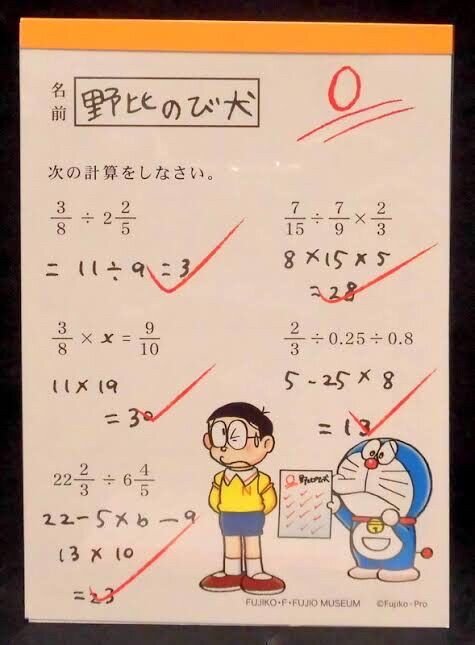 名前 野比のび犬
0
次の計算をしなさい。
3/8 ÷ 2 2/5
= 11÷9=3
7/15 ÷ 7/9 × 2/3
8×15×5
=28
3/8 × x = 9/10
11×19
=30
2/3 ÷0.25÷0.8
5-25×8
=13
22 2/3 ÷ 6 4/5
22-5×6-9
13×10
=23
0 野比のび犬
N
FUJIKO・F・FUJIO MUSEUM ©Fujiko-Pro